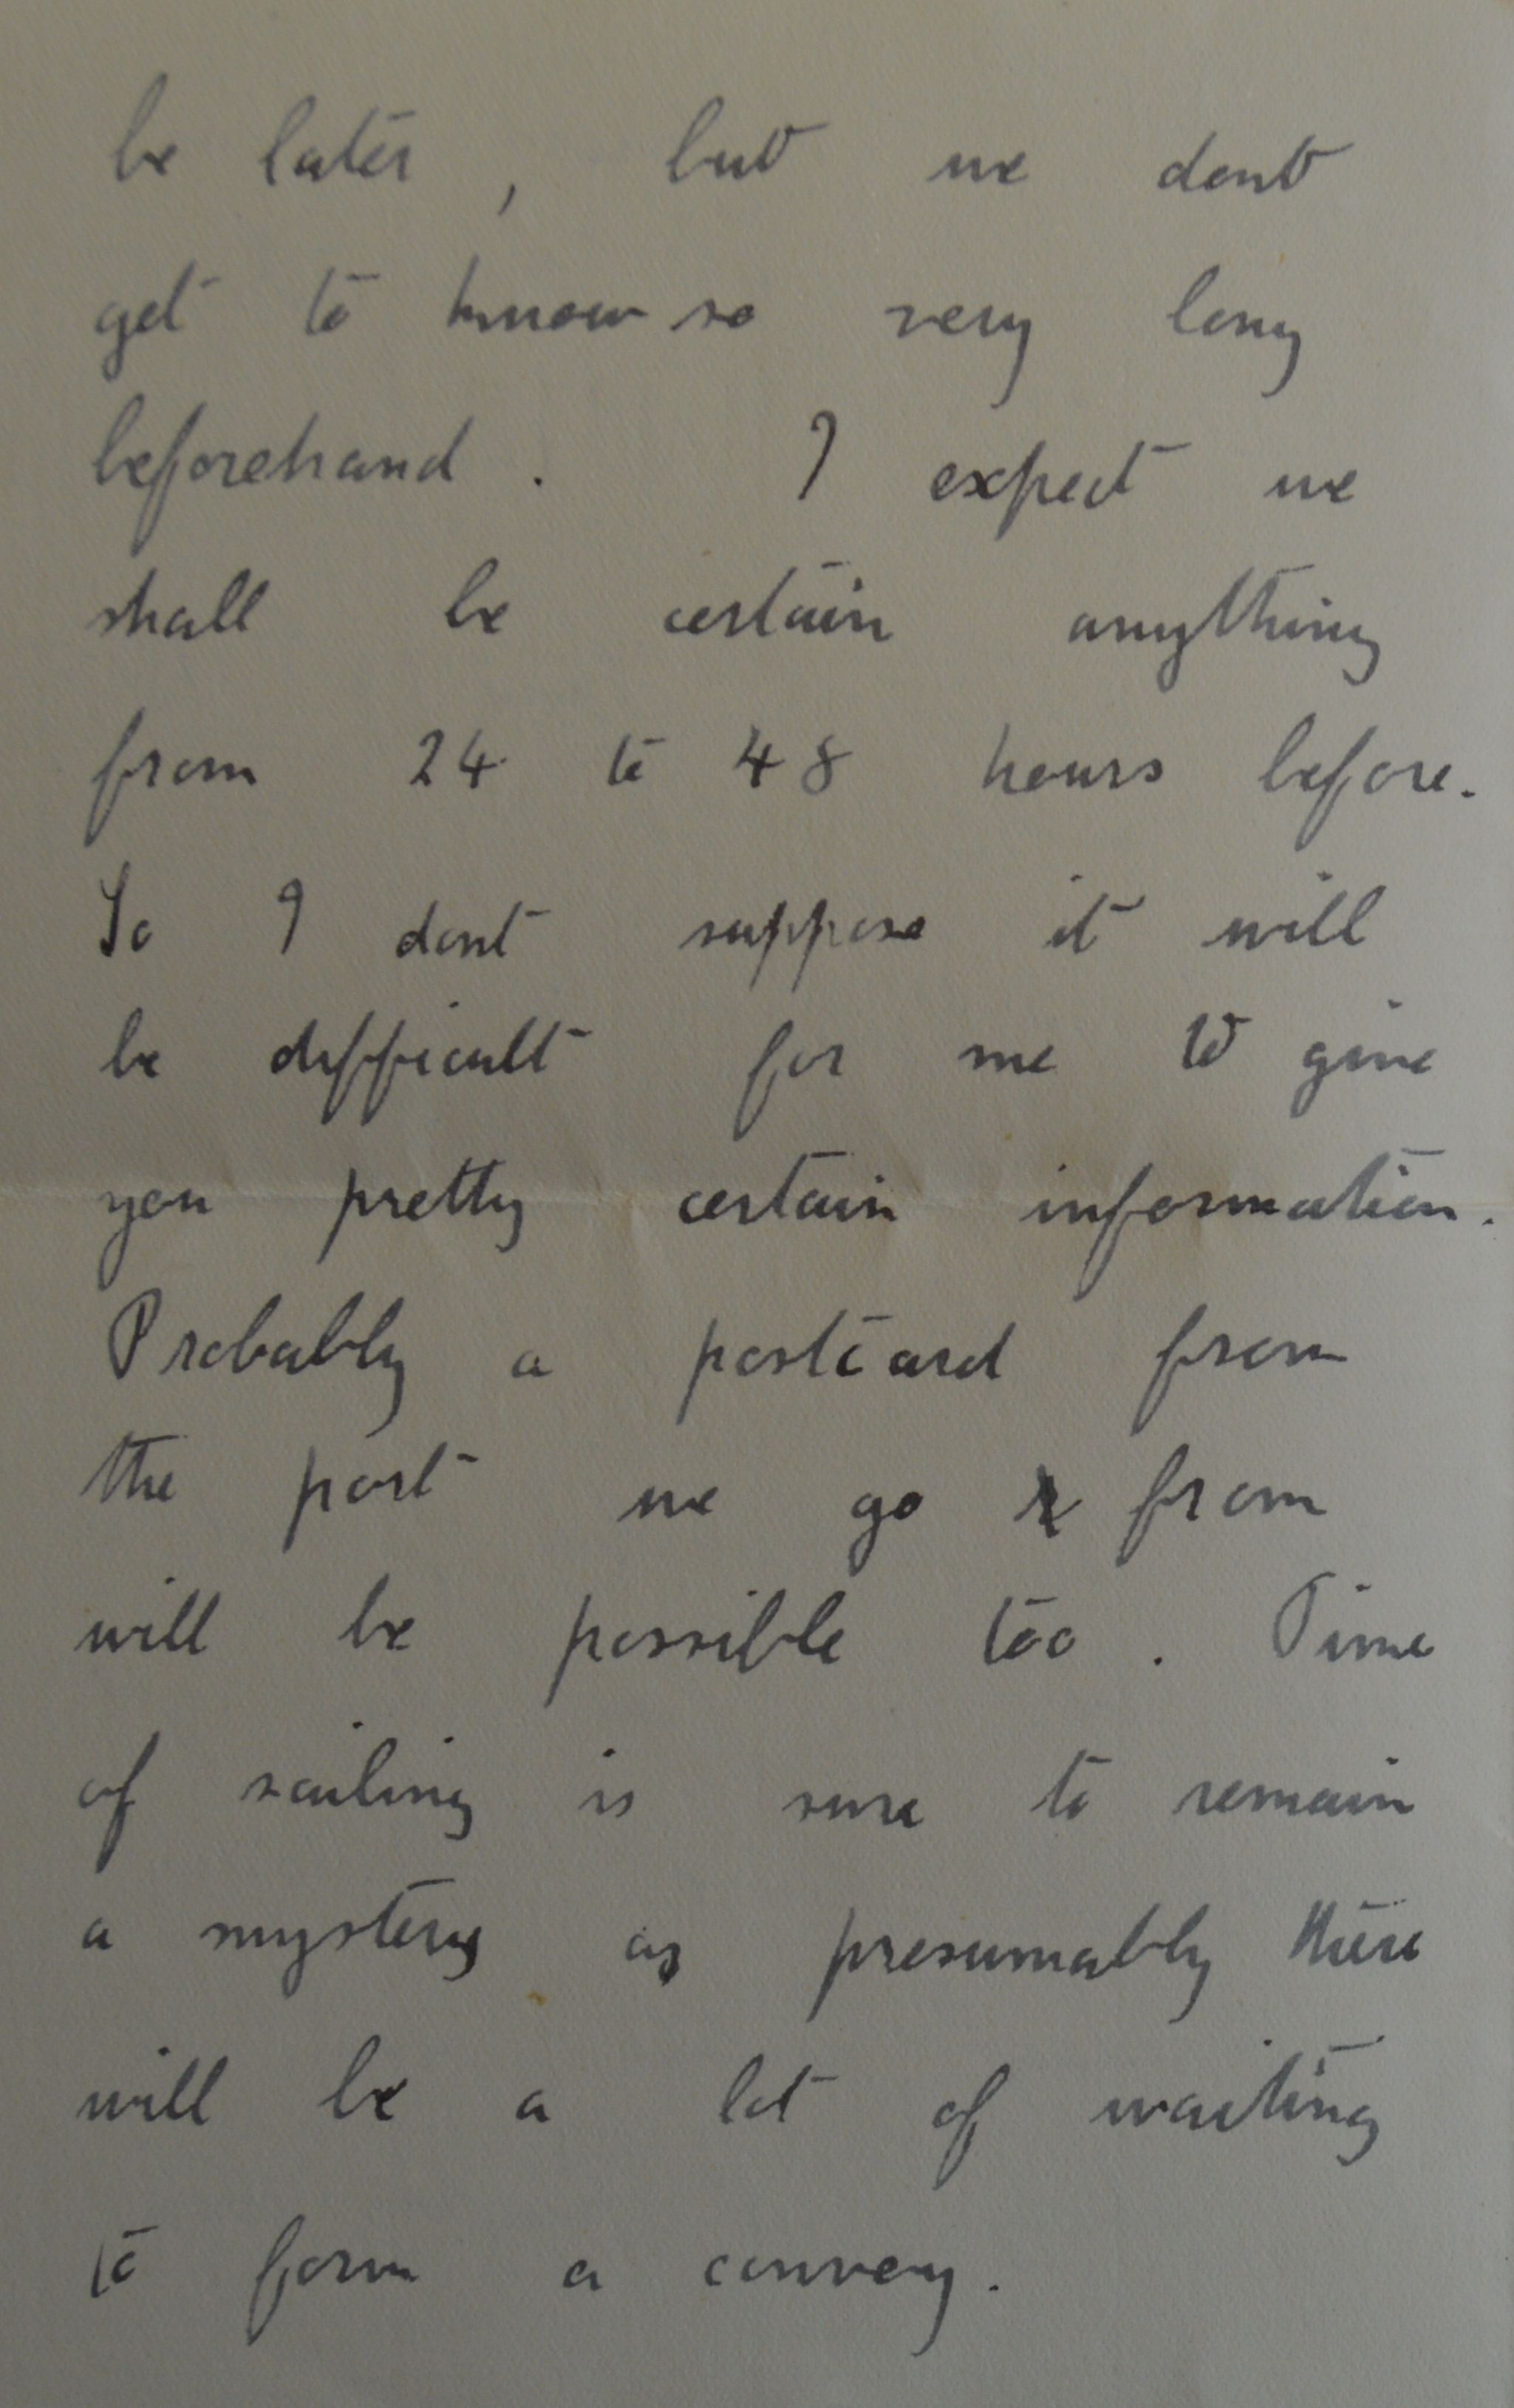 be later , but we dont
get to know so very long
beforehand . I expect we
shall be certain anything
from 24 to 48 hours before.
So I dont suppose it will
be difficult for me to give
you pretty certain information.
Probably a postcard from
the port we go from
will be possible too . Time
of sailing is sure to remain
a mystery as presumably there
will be a lot of waiting
to form a convoy .